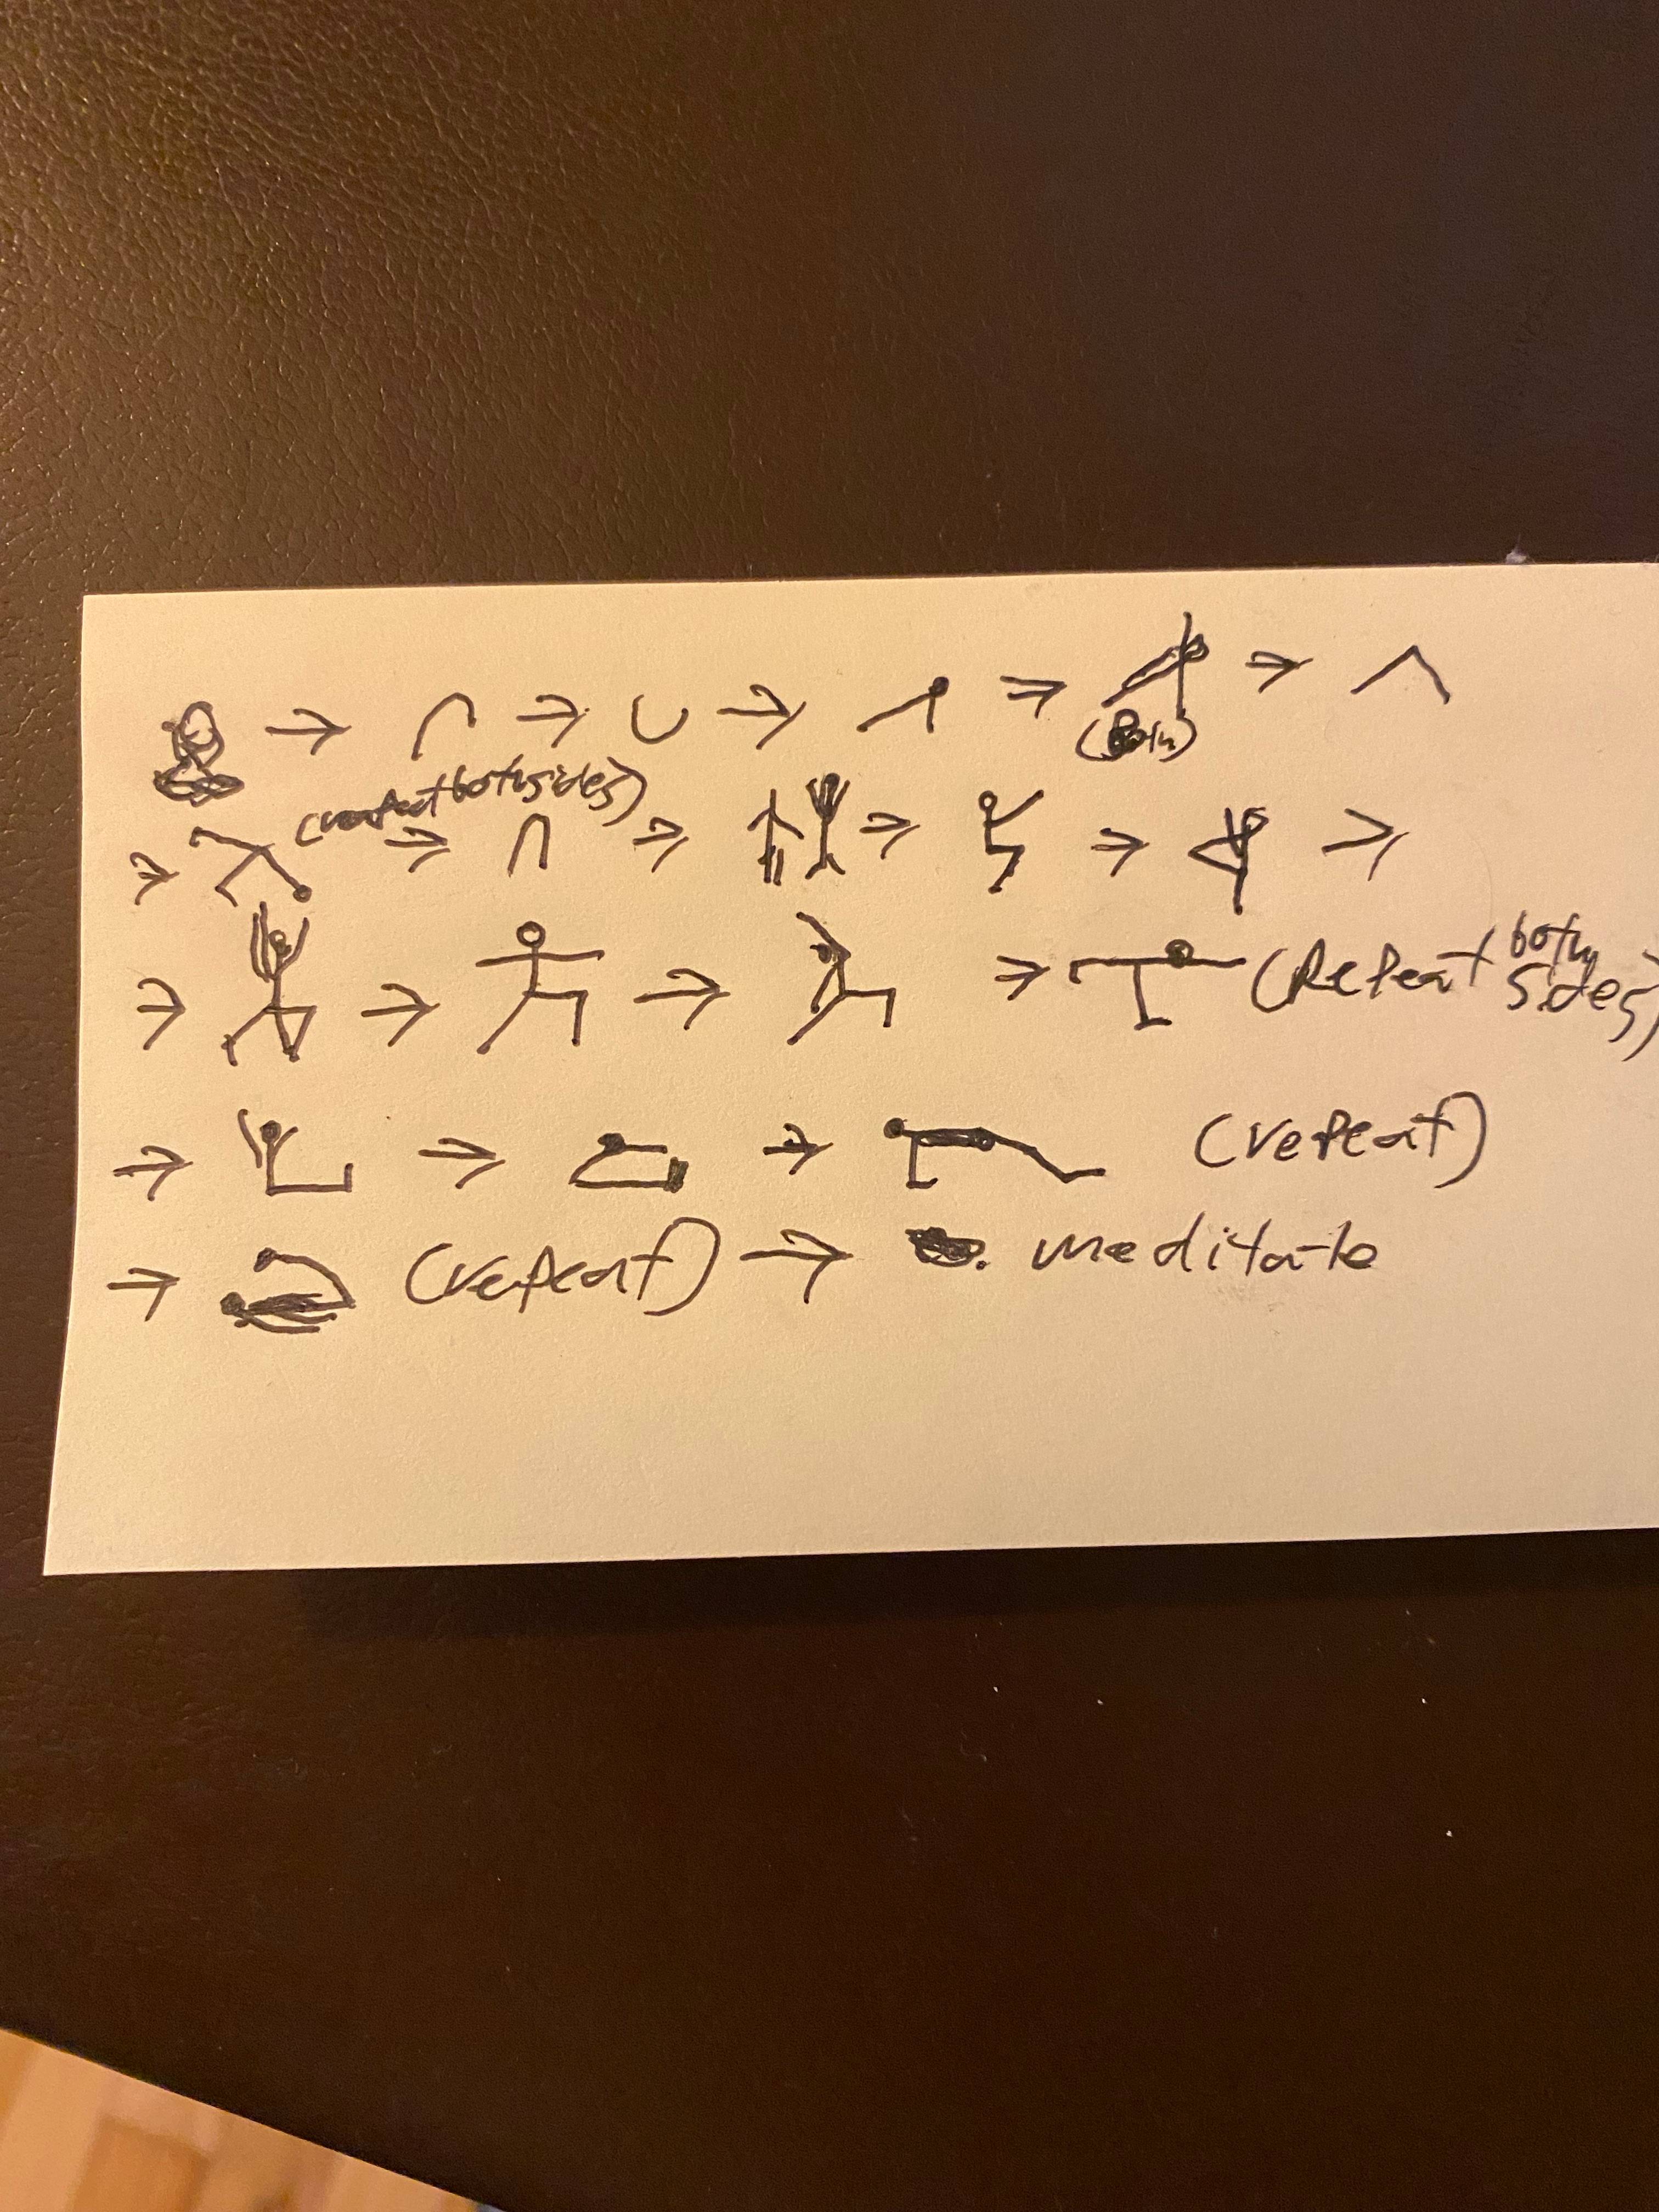 (Both)
(repeat both sides)
(Repeat both sides)
(repeat)
(repeat) meditate